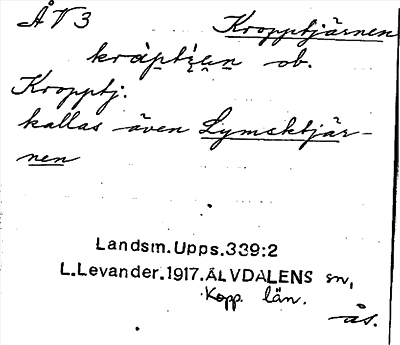 ÅV3 Kropptjärnen
kràpt̯i̯ęn ob.
Kropptj.
kallas även Lymsktjär-
nen
Landsm.Upps.339:2
L.Levander.1917.ÄLVDALENS sn,
Kopp. län.
ås.